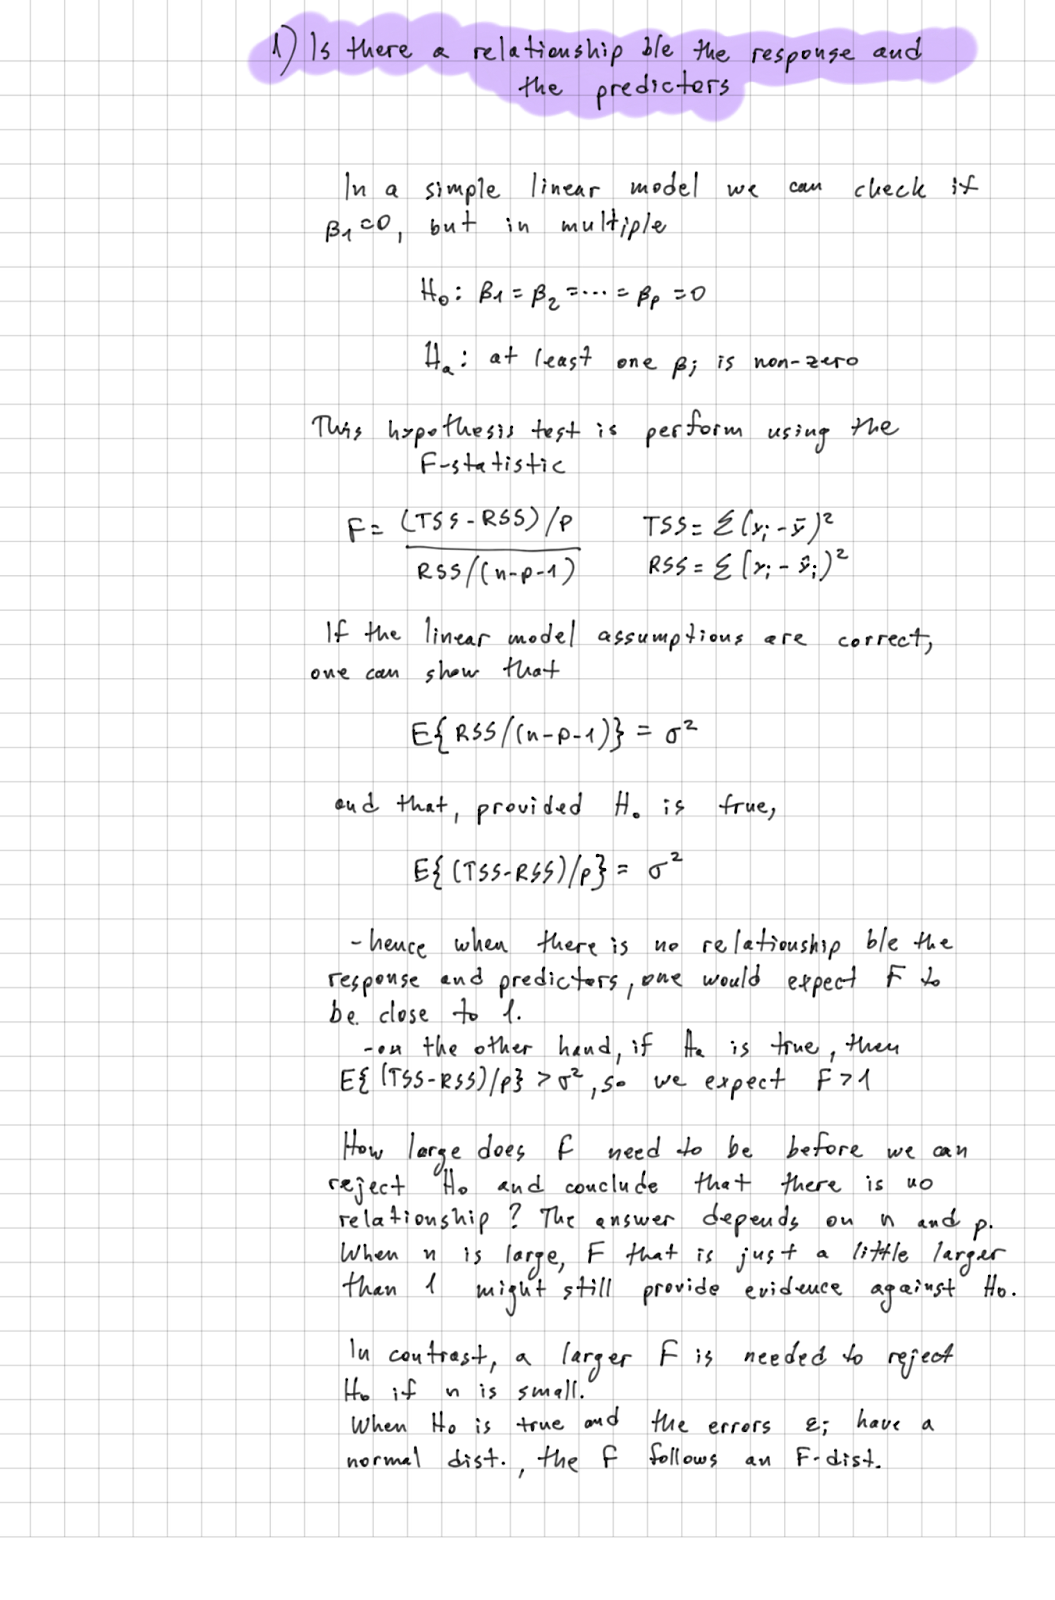 1) Is there a relationship b/e the response and
the predictors
In a simple linear model we can check if
β₁=0, but in multiple
H₀: β₁ = β₂ = ... = βₚ = 0
Hₐ: at least one βⱼ is non-zero
This hypothesis test is perform using the
F-statistic
F = (TSS - RSS)/p / RSS/(n-p-1) TSS = Σ(yᵢ - ȳ)²
RSS = Σ(yᵢ - ŷᵢ)²
If the linear model assumptions are correct,
one can show that
E{RSS/(n-p-1)} = σ²
and that, provided H₀ is true,
E{(TSS-RSS)/p} = σ²
- hence when there is no relationship b/e the
response and predictors, one would expect F to
be close to 1.
- on the other hand, if Hₐ is true, then
E{(TSS-RSS)/p} > σ², so we expect F>1
How large does F need to be before we can
reject H₀ and conclude that there is no
relationship? The answer depends on n and p.
When n is large, F that is just a little larger
than 1 might still provide evidence against H₀.
In contrast, a larger F is needed to reject
H₀ if n is small.
When H₀ is true and the errors εᵢ have a
normal dist., the F follows an F-dist.